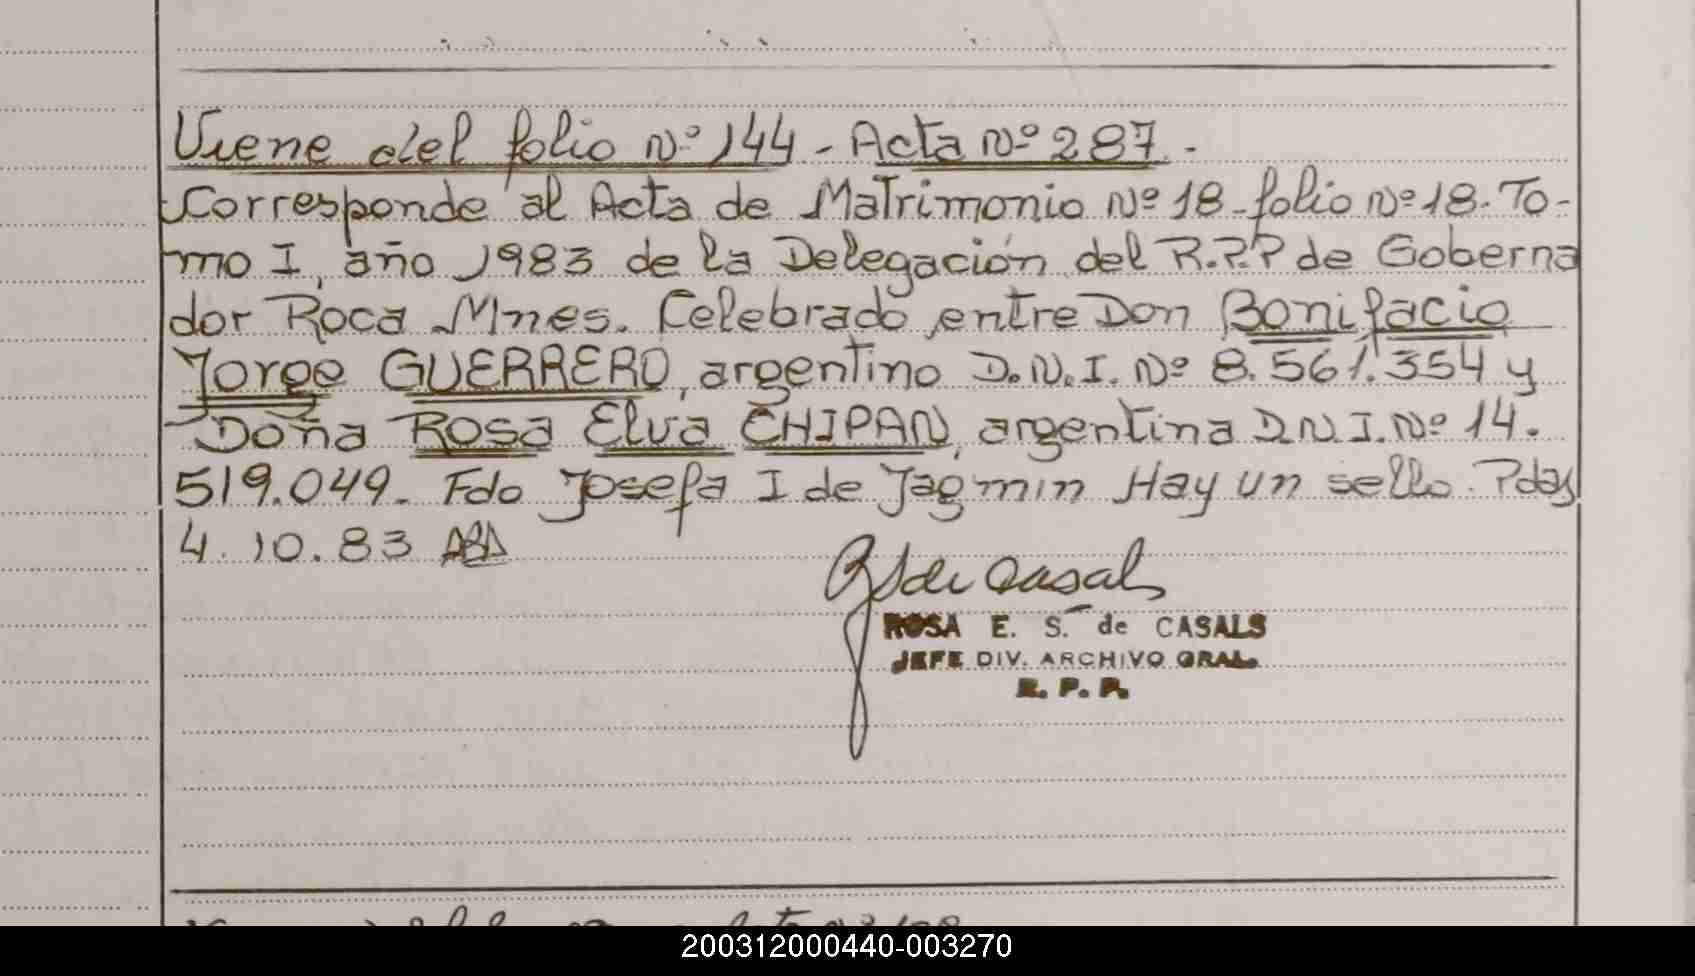 Viene del folio Nº 144 - Acta Nº 287 -
Corresponde al Acta de Matrimonio Nº 18 - folio Nº 18. To-
mo I, año 1983 de la Delegación del R.P.P de Goberna
dor Roca Mnes. Celebrado entre Don Bonifacio
Jorge GUERRERO, argentino D.N.I. Nº 8.561.354 y
Doña Rosa Elva CHIPAN, argentina D.N.I. Nº 14.
519.049. Fdo Josefa I de Jagmin Hay un sello. Pdas
4.10.83
de Casals
ROSA E. S. de CASALS
JEFE DIV. ARCHIVO GRAL.
R. P. P.
200312000440-003270